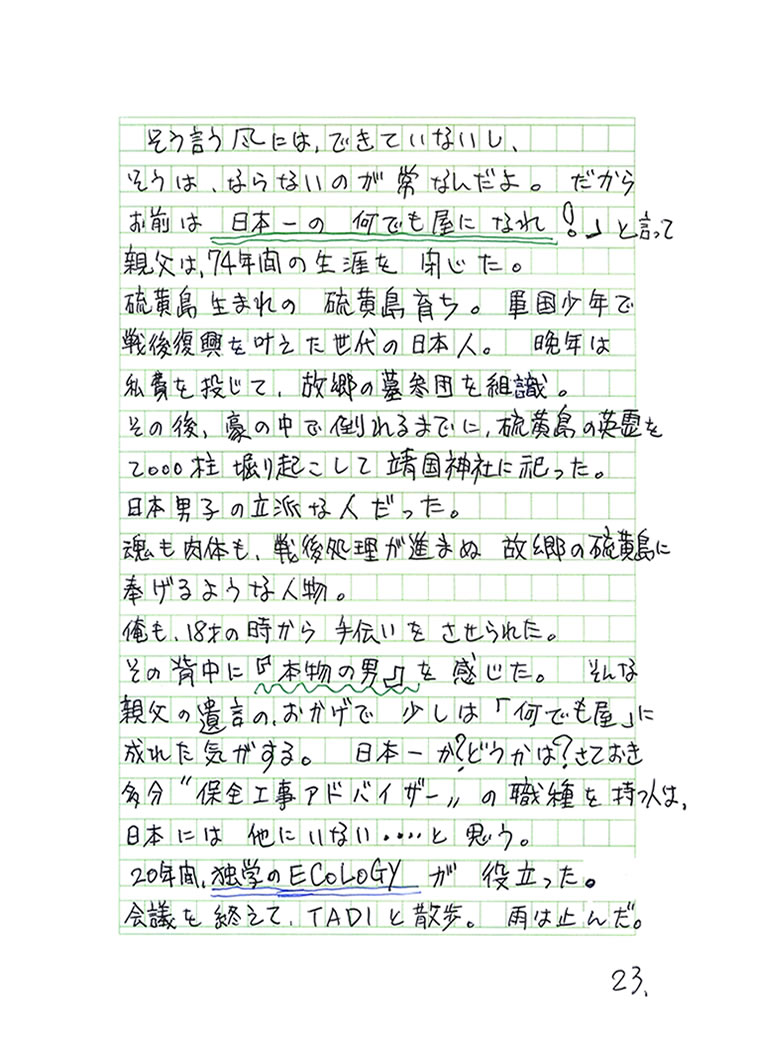 そう言う風には、できていないし、
そうは、ならないのが常なんだよ。 だから
お前は 日本一の 何でも屋に なれ!」と言って
親父は、74年間の生涯を 閉じた。
硫黄島生まれの 硫黄島育ち。 軍国少年で
戦後復興を叶えた世代の日本人。 晩年は
私費を投じて、故郷の墓参団を組識。
その後、豪の中で倒れるまでに、硫黄島の英霊を
2000柱 堀り起こして 靖国神社に祀った。
日本男子の立派な人だった。
魂も肉体も、戦後処理が進まぬ 故郷の硫黄島に
奉げるような人物。
俺も、18才の時から 手伝いを させられた。
その背中に『本物の男』を 感じた。 そんな
親父の遺言の、おかげで 少しは「何でも屋」に
成れた気がする。 日本一か?どうかは?さておき
多分〝保全工事アドバイザー〟の職種を持つ人は、
日本には 他にいない‥‥と 思う。
20年間、独学のECOLOGY が 役立った。
会議を終えて、TADIと散歩。 雨は止んだ。
23.